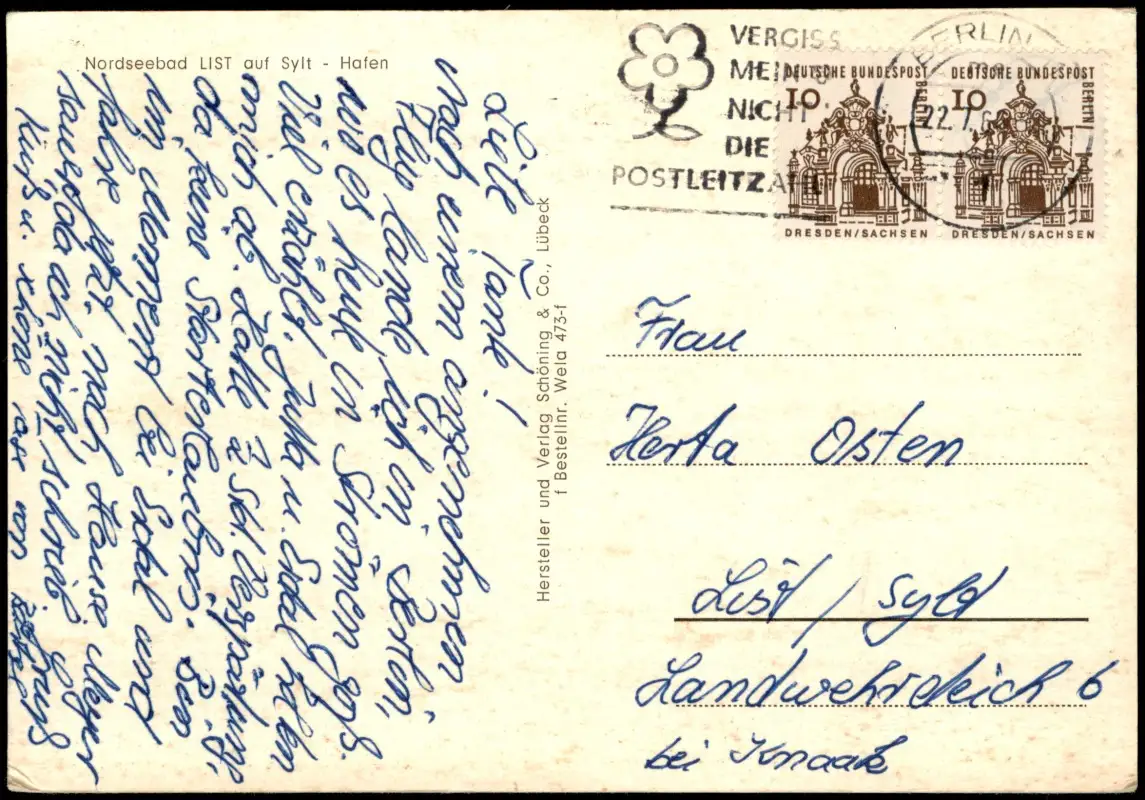 Nordseebad LIST auf Sylt - Hafen
Liebe Tante!
Nach einem angenehmen
Flug lande ich in Berlin,
wo es heute in Strömen goß.
Viel erzählt. Jutta u. Sabel holten
mich ab. Hatte 3 Std. Verspätung,
da kein Starterlaubnis. Bin
im Moment bei Sabel und
fahre jetzt nach Hause. Meyer
sauer, da ich nicht schrieb. Gruß
Kuß u.
Hersteller und Verlag Schöning & Co., Lübeck
f Bestellnr. Wela 473-f
VERGISS
MEIN
NICHT
DIE
POSTLEITZAHL
BERLIN
22.7.6
1
DEUTSCHE BUNDESPOST
BERLIN
10
DRESDEN/SACHSEN
DEUTSCHE BUNDESPOST
BERLIN
10
DRESDEN/SACHSEN
Frau
Herta Osten
List / Syld
Landwehrdeich 6
bei Knaak